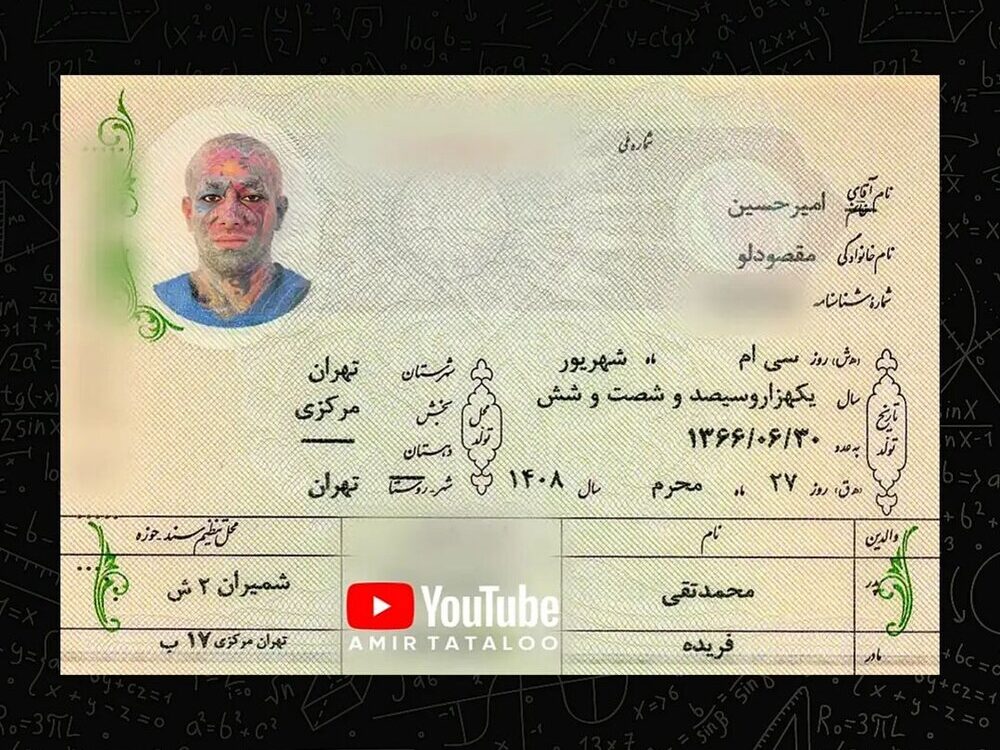 شماره ملی
نام آقای امیرحسین
نام خانوادگی مقصودلو
شماره شناسنامه
تاریخ تولد
(ه‍.ش) روز سی ام ماه شهریور
سال یکهزاروسیصد و شصت و شش
به عدد ۱۳۶۶/۰۶/۳۰
(ه‍.ق) روز ۲۷ ماه محرم سال ۱۴۰۸
محل تولد
شهرستان تهران
بخش مرکزی
دهستان ــــ
شهر-روستا تهران
والدین نام محل تنظیم سند-حوزه
پدر محمدتقی شمیران ۲ ش
مادر فریده تهران مرکزی ۱۷ ب
YouTube
AMIR TATALOO